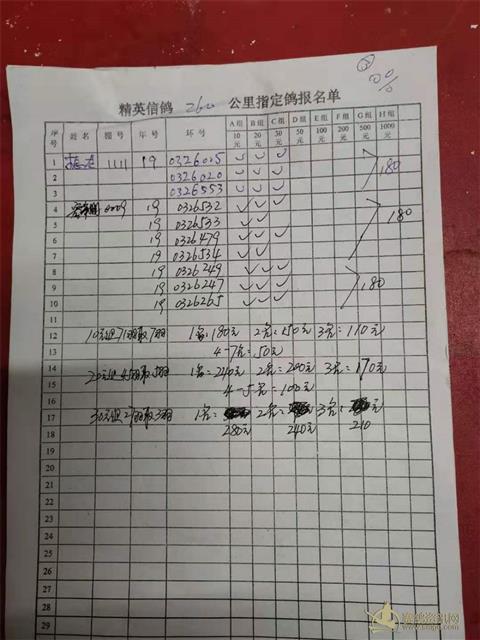 精英信鸽 260 公里指定鸽报名单
序号 姓名 棚号 年号 环号 A组10元 B组20元 C组30元 D组50元 E组100元 F组200元 G组500元 H组1000元
1 1111 19 0326015 ✓ ✓ ✓
2 0326020 ✓ ✓ ✓ 180
3 0326553 ✓ ✓ ✓
4 0009 19 0326532 ✓ ✓ ✓
5 19 0326533 ✓ ✓ 180
6 19 0326479 ✓ ✓
7 19 0326534 ✓ ✓
8 19 0326249 ✓ ✓ ✓
9 19 0326247 ✓ ✓ ✓ 180
10 19 0326265 ✓ ✓ ✓
11
12 10元组71羽取7羽 1名:180元 2名:150元 3名:110元
13 4-7名:50元
14 20元组45羽取5羽 1名:240元 2名:200元 3名:170元
15 4-5名:100元
16
17 30元组27羽取3羽 1名: 2名: 3名: 元
18 280元 240元 210
19
20
21
22
23
24
25
26
27
28
29